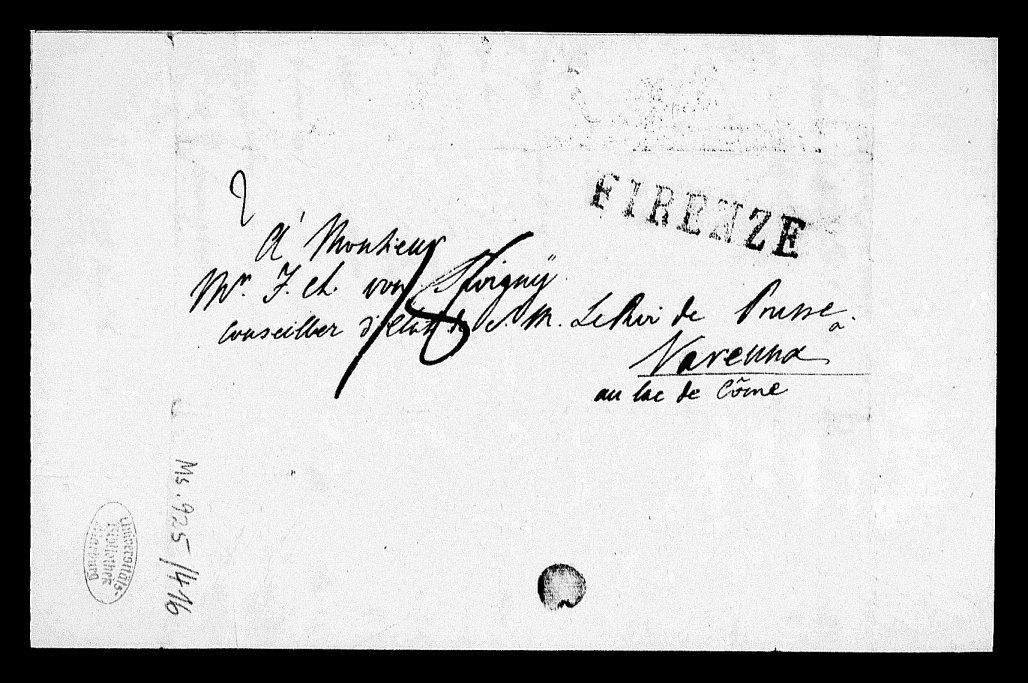 FIRENZE
2
A' Monsieur
Mr. F. Ch. von Savigny
Conseiller d'état de S. M. Le Roi de Prusse.
a
Varenna
au lac de Côme
Ms. 925/1416
Universitäts-
Bibliothek
Marburg